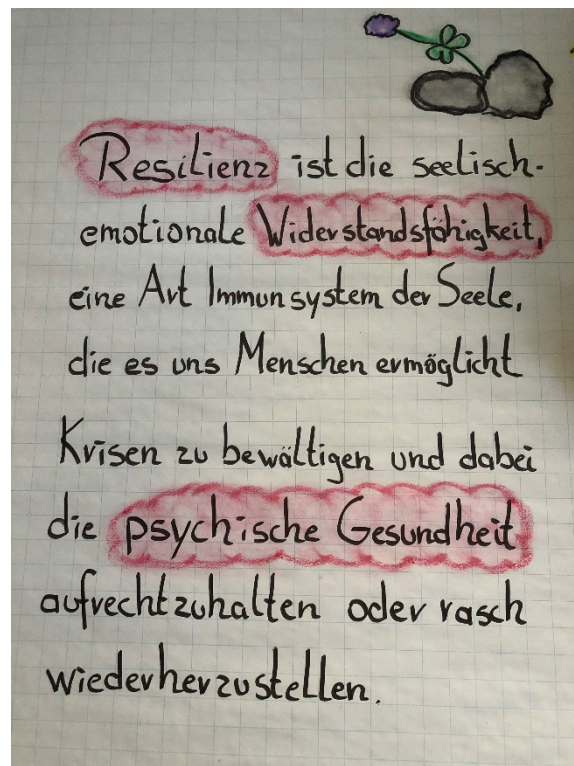 Resilienz ist die seelisch-
emotionale Widerstandsfähigkeit,
eine Art Immunsystem der Seele,
die es uns Menschen ermöglicht
Krisen zu bewältigen und dabei
die psychische Gesundheit
aufrechtzuhalten oder rasch
wiederherzustellen.